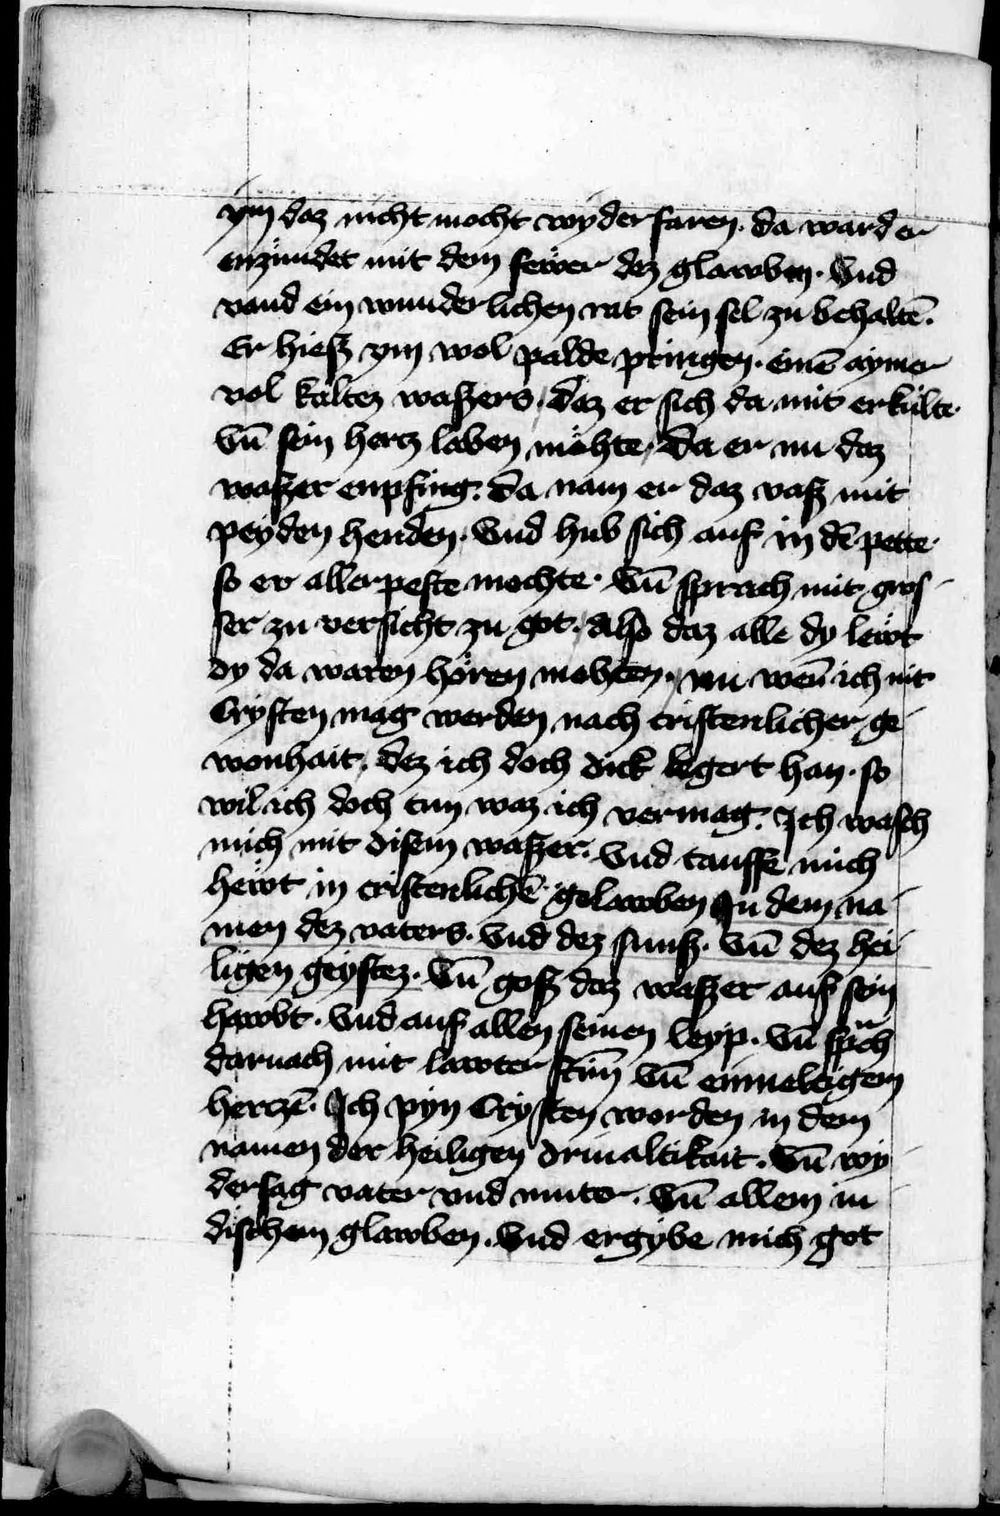 ym daz nicht mocht wyder faren. da ward er
enzündet mit dem fewer dez glawben. Vnd
vand ein wunderlichen rat sein sel zu behaltē.
Er hieß ym wol palde pringen. einē aymer
vol kaltez waßers, daz er sich da mit erkülte.
Vn̄ sein hercz laben möhte, Da er nu daz
waßer enpfing. Da nam er daz vaß mit
peyden henden. Vnd hub sich auf in dē pette.
so er aller peste mochte. Vn̄ sprach mit gros
ser zu versicht zu got. Also daz alle dy lewt
dy da waren hören mohten, nu wen̄ ich nit
Crysten mag werden nach cristenlicher ge
wonhait, dez ich doch dick begert han. so
wil ich doch tun waz ich vermag. Ich wasch
mich mit disem waßer. Vnd tauffe mich
hewt in cristenlichē gelawben In dem na
men dez vaters. Vnd dez sunß. Vn̄ dez hei
ligen geystez. Vn̄ goß daz waßer auf sein
hawbt. Vnd auf allen seinen leyp. Vn̄ sp̄ch
darnach mit lawter stim̄ Vn̄ einueltigem
herczē. Ich pyn Crysten worden in dem
namen der heiligen driualtikait. Vn̄ wy
dersag vater vnd muter. Vn̄ allem iu
dischem glawben. Vnd ergybe mich got